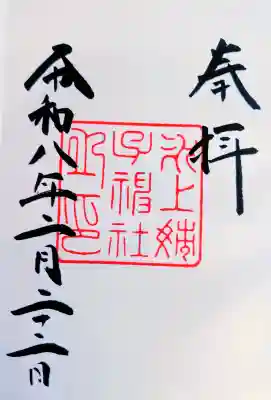 奉拝
氷上姉
子神社
之印
令和八年二月二十二日